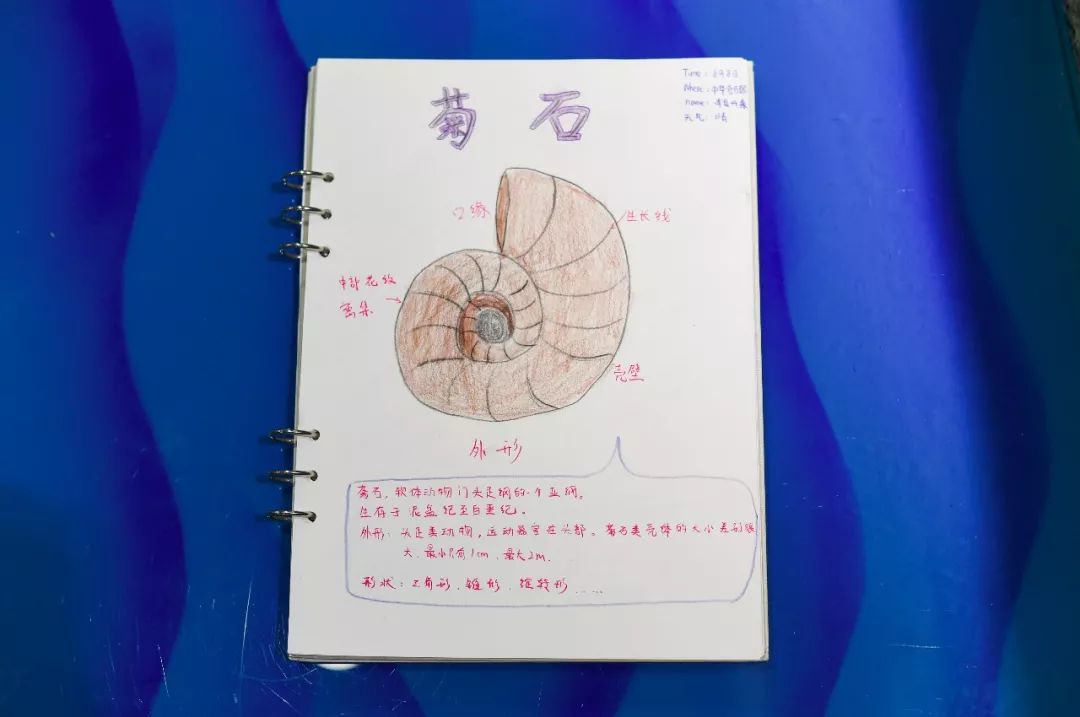 菊石
Time:
Where:
name:
天气:晴
口缘
生长线
花纹
密集
壳壁
外形
菊石,软体动物门头足纲的一个亚纲。
生存于泥盆纪至白垩纪。
外形:头足类动物,运动器官在头部。菊石类壳体的大小差别很
大,最小只有1cm,最大2m.
形状:三角形,锥形,旋转形......